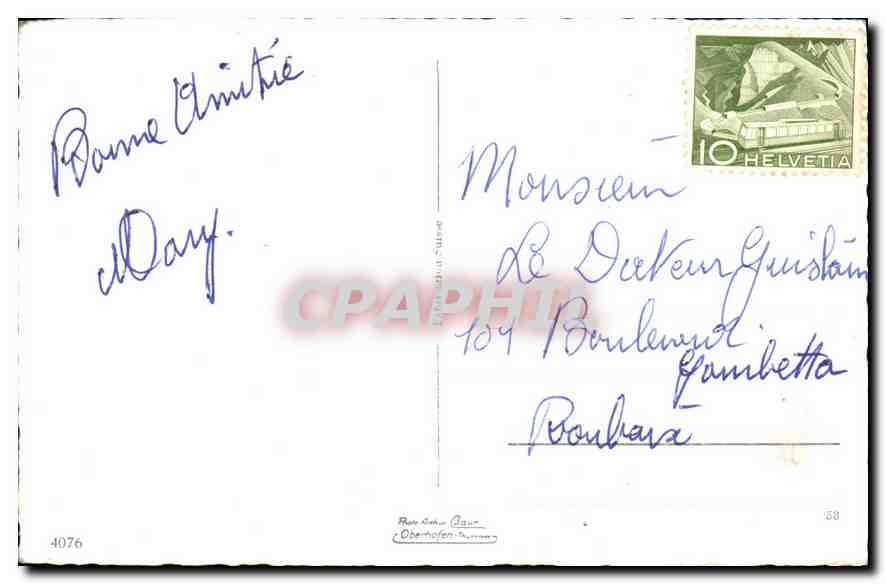 Bonne Amitié
Mary.
10 HELVETIA
Monsieur
Le Docteur Guislain
104 Boulevard
Gambetta
Roubaix
CPAPHIL
4076
Photo Arthur Baur
Oberhofen
53